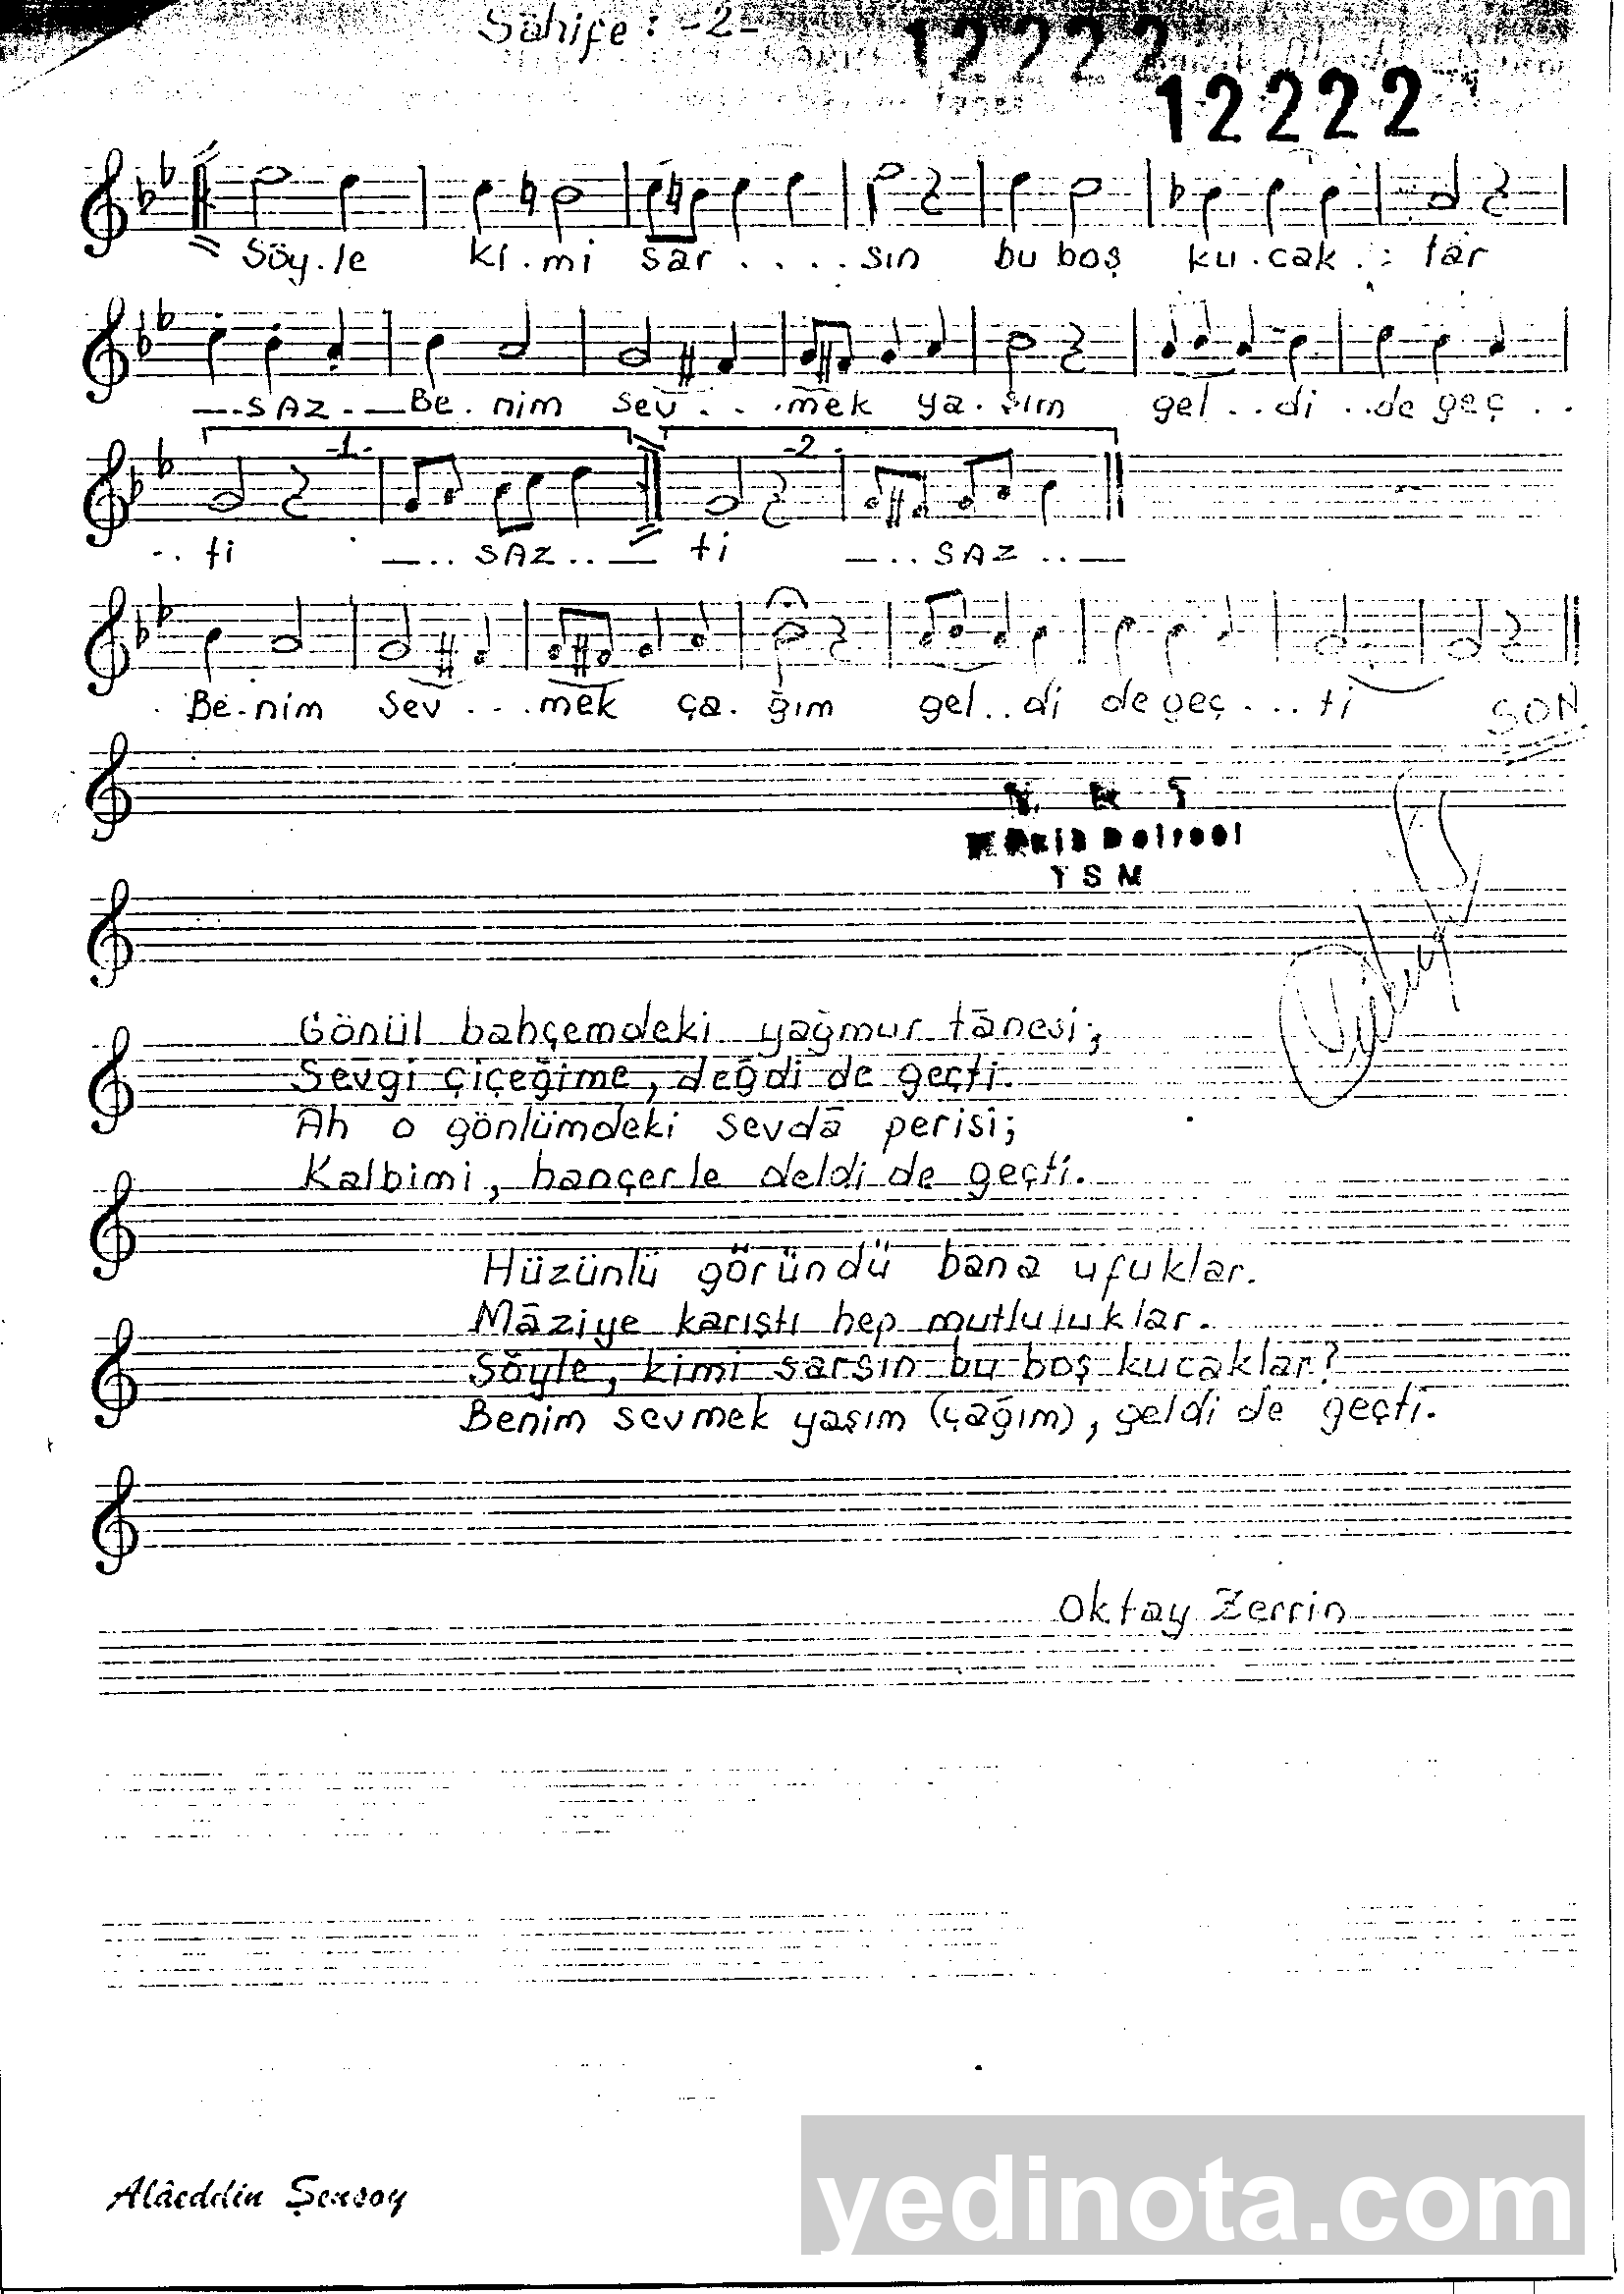 Sahife: -2-
12222
12222
Söy.le ki.mi sar . . . . sın bu boş ku.cak . : lar
—..SAZ.— Be.nim sev . . . mek ya.şım gel..di..de geç . .
-1- -2-
-.ti —..SAZ..— ti —..SAZ..—
Be.nim sev...mek ça.ğım gel..di de geç...ti SON
TSM
Gönül bahçemdeki yağmur tānesi;
Sevgi çiçeğime, değdi de geçti.
Ah o gönlümdeki sevdā perisi;
Kalbimi, hançerle deldi de geçti.
Hüzünlü göründü bana ufuklar.
Māziye karıştı hep mutluluklar.
Söyle, kimi sarsın bu boş kucaklar?
Benim sevmek yaşım (çağım), geldi de geçti.
Oktay Zerrin
Alâeddin Şensoy
yedinota.com